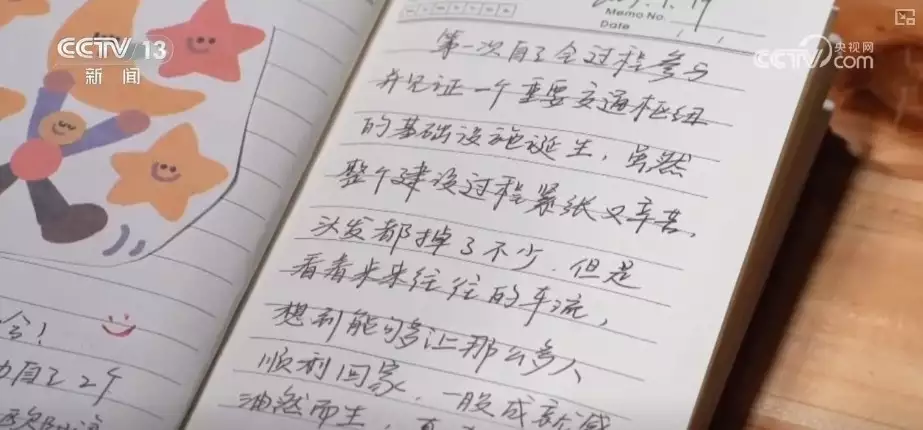 CCTV 13
新闻
央视网
CCTV.com
Memo No.
Date
第一次自己全过程参与
并见证一个重要交通枢纽
的基础设施诞生,虽然
整个建设过程紧张又辛苦,
头发都掉了不少,但是
看着来来往往的车流,
想到能够多让那么多人
顺利回家,一股成就感
油然而生,
自己2个